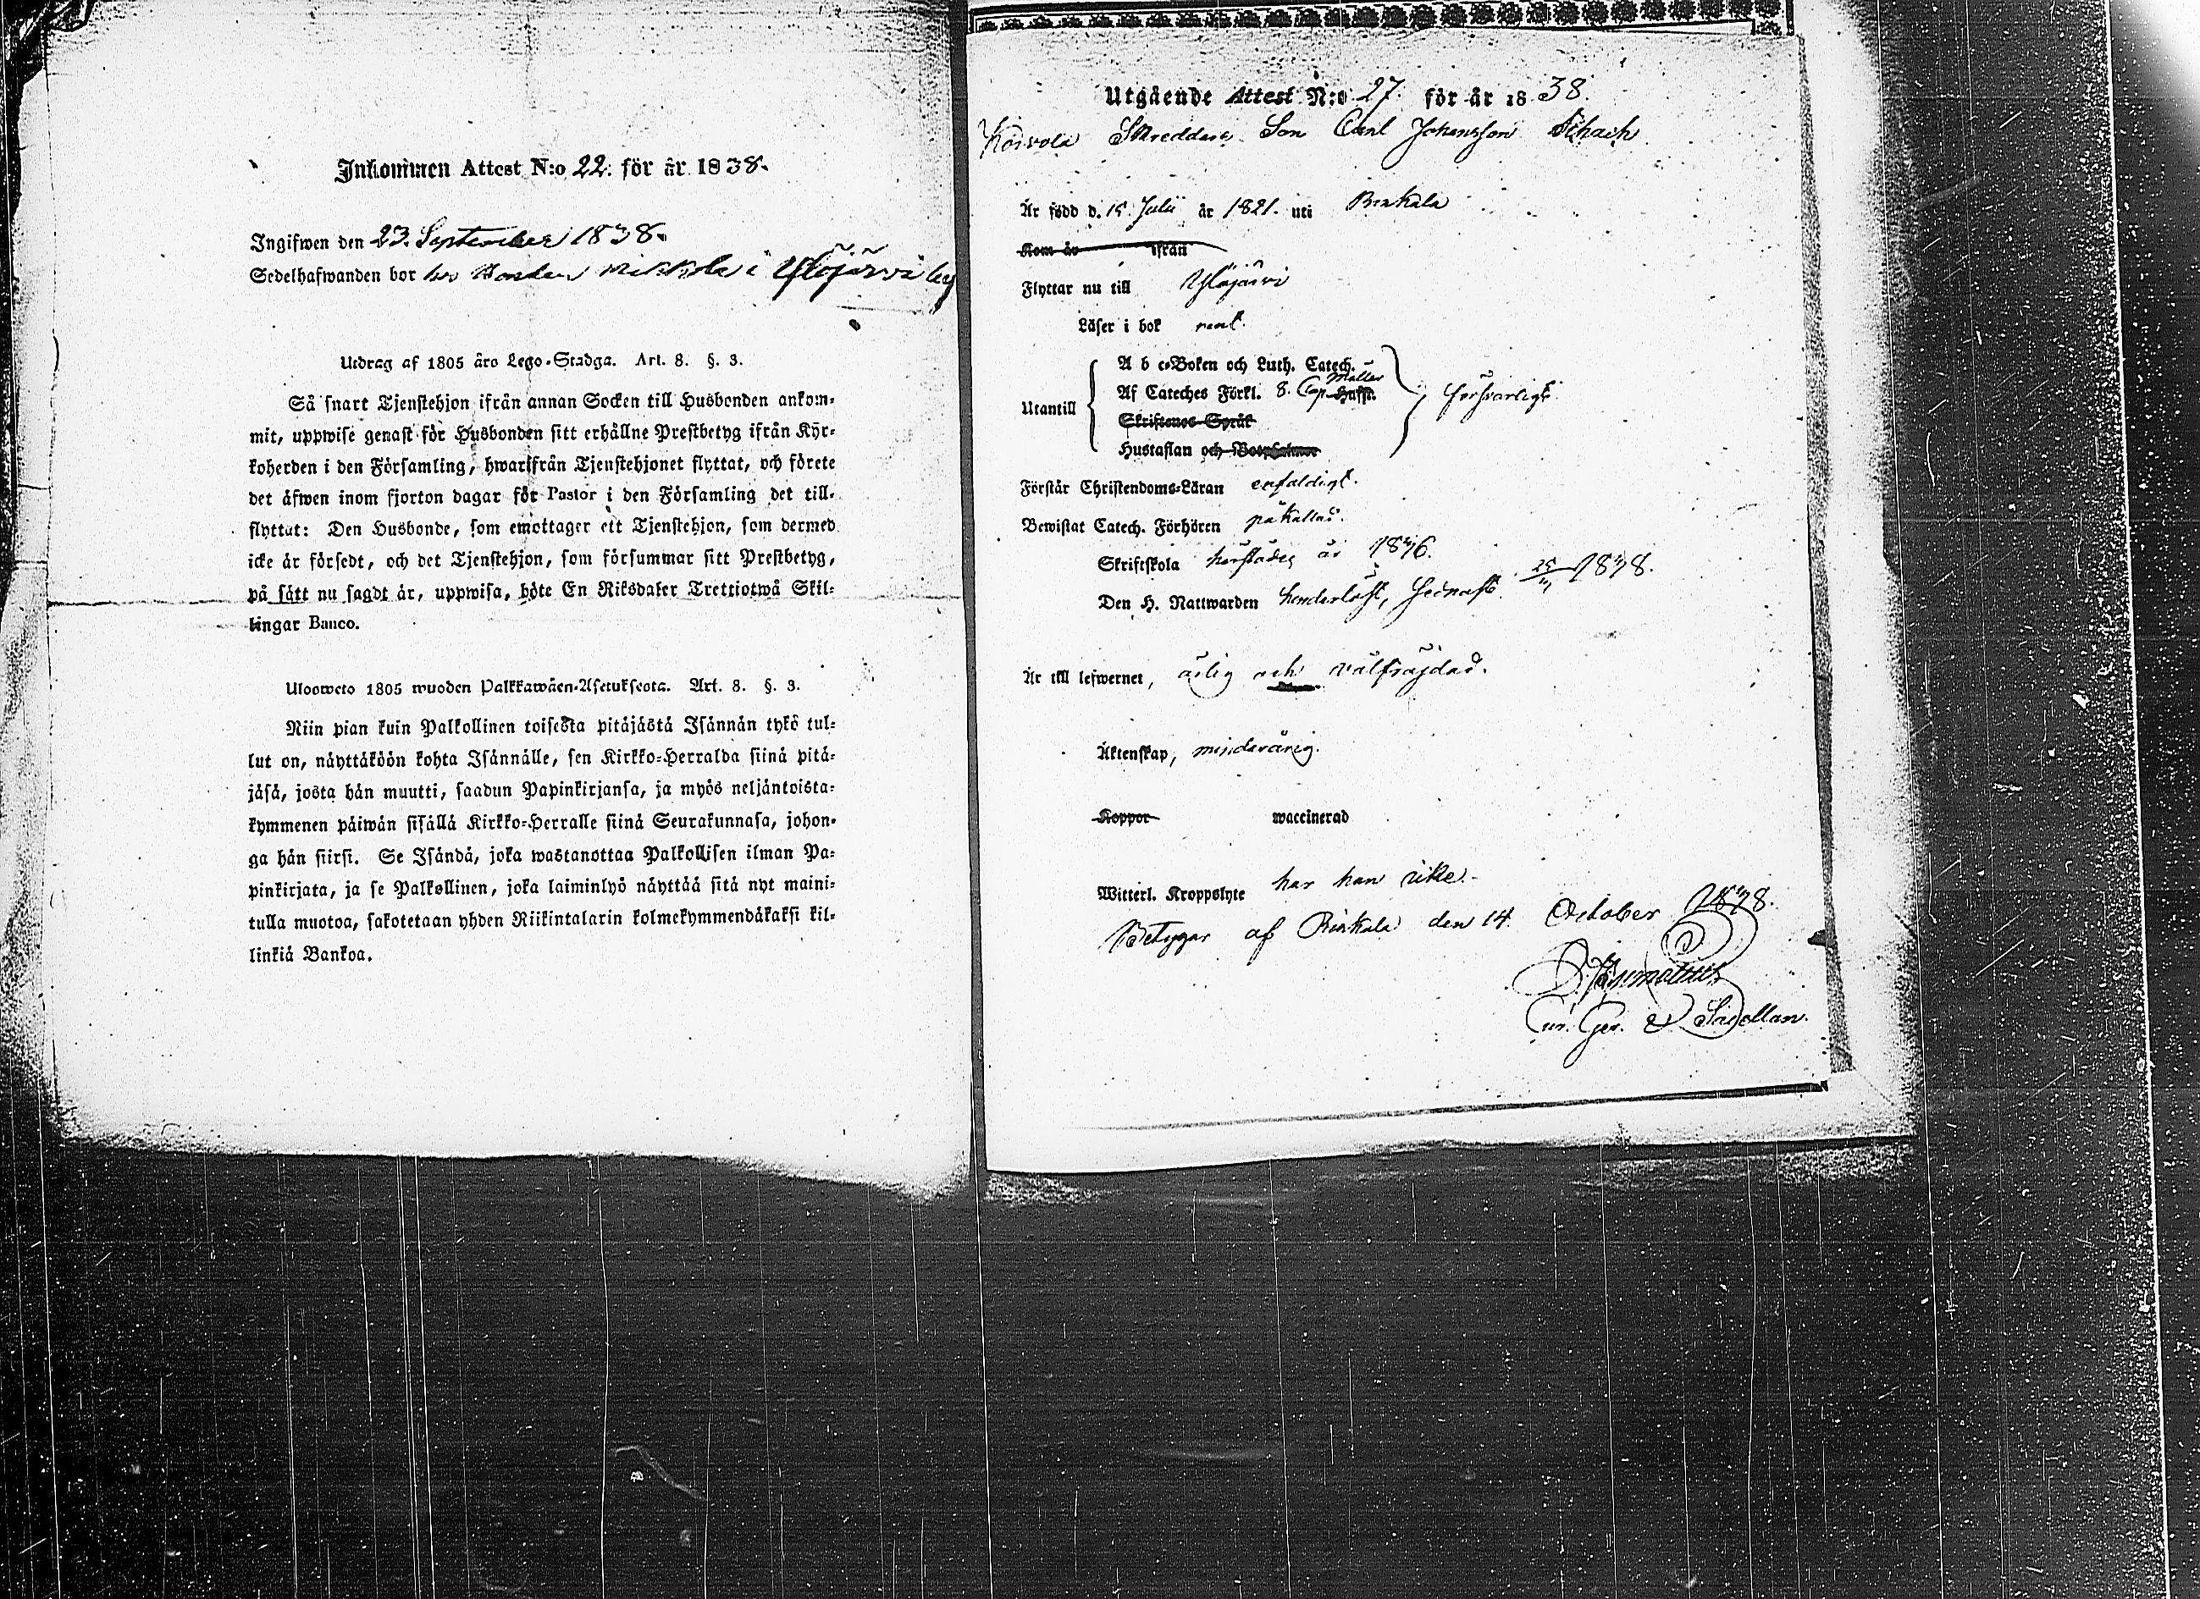 Inkommen Attest N:o 22. för år 1838.
Ingifwen den 23. September 1838.
Sedelhafwanden bor hos Bonden Mikkola i Ylöjärvi by
Utdrag af 1805 års Lego-Stadga. Art. 8. §. 3.
Så snart Tjenstehjon ifrån annan Socken till Husbonden ankom-
mit, uppwise genast för Husbonden sitt erhållne Prestbetyg ifrån Kyr-
koherden i den Församling, hwarifrån Tjenstehjonet flyttat, och förete
det äfwen inom fjorton dagar för Pastor i den Församling det till-
flyttat: Den Husbonde, som emottager ett Tjenstehjon, som dermed
icke är försedt, och det Tjenstehjon, som försummar sitt Prestbetyg,
på sätt nu sagdt är, uppwisa, böte En Riksdaler Trettiotwå Skil-
lingar Banco.
Uloosweto 1805 wuoden Palkkawäen-Asetuksesta. Art. 8. §. 3.
Niin pian kuin Palkollinen toisesta pitäjästä Isännän tykö tul-
lut on, näyttäköön kohta Isännälle, sen Kirkko-Herralda siinä pitä-
jäsä, josta hän muutti, saadun Papinkirjansa, ja myös neljäntoista-
kymmenen päiwän sisällä Kirkko-Herralle siinä Seurakunnasa, johon-
ga hän siirsi. Se Isändä, joka wastanottaa Palkollisen ilman Pa-
pinkirjata, ja se Palkollinen, joka laiminlyö näyttää sitä nyt maini-
tulla muotoa, sakotetaan yhden Riikintalarin kolmekymmendäkaksi kil-
linkiä Bankoa.
Utgående Attest N:o 27. för år 1838.
Korvola Skreddare Son Carl Johansson Schach
Är född d. 15. Julii år 1821. uti Birkala
Kom år ifrån
Flyttar nu till Ylöjärvi
Läser i bok rent.
Utantill
A b c-Boken och Luth. Catech.
Af Cateches Förkl. 8. Cap. Möller Huffst.
försvarligt
Skriftenes Språk
Hustaflan och Botpsalmer
Förstår Christendoms-Läran enfaldigt.
Bewistat Catech. Förhören påkallad.
Skriftskola härstädes år 1836.
Den H. Nattwarden hinderlöst, sednast 25/3 1838.
Är till lefwernet, ärlig och välfräjdad.
Äktenskap, minderårig.
Koppor waccinerad
Witterl. Kroppslyte har han icke.
Betygar af Birkala den 14. October 1838.